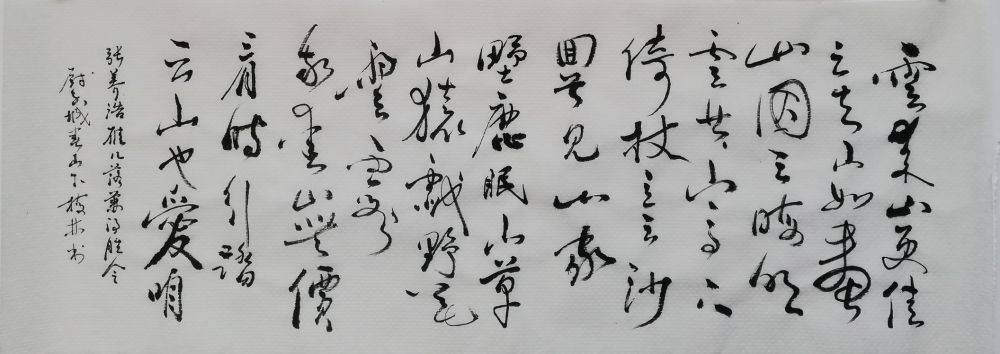 雲來山更佳
云去山如畫
山因云晦明
雲共山高下
倚杖立云沙
回首見山家
野鹿眠山草
山猿戲野花
雲霞
我愛山無價
看時行踏
云山也愛咱
張養浩雁儿落兼得勝令
山下
书